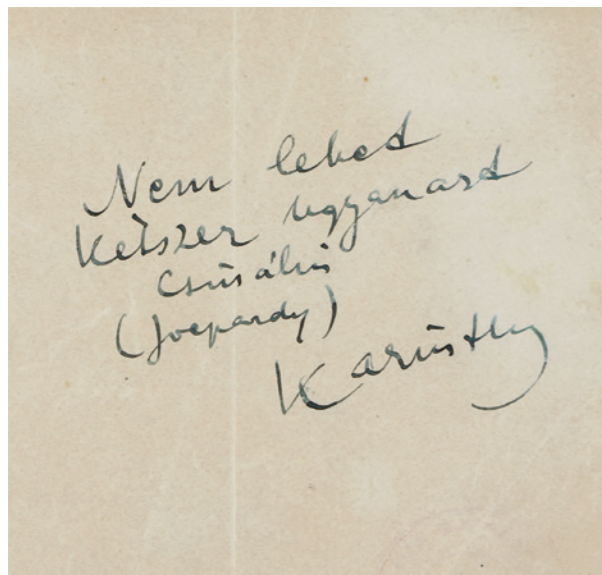 Nem lehet
Kétszer ugyanazt
csinálni
(Joepardy)
Karinthy